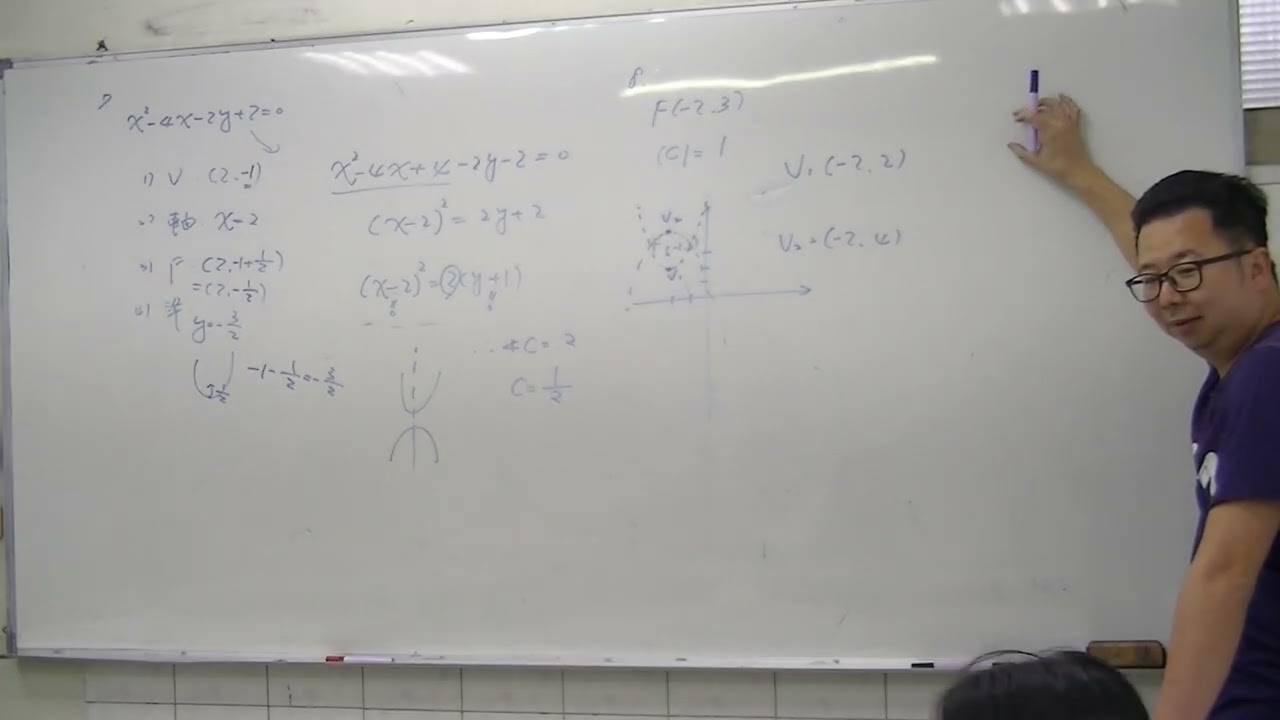 7
x²-4x-2y+2=0
(1) V (2,-1)
(2) 軸 x-2
(3) F (2,-1+1/2)
=(2,-1/2)
(4) 準
y=-3/2
1/2
-1-1/2=-3/2
x²-4x+4-2y-2=0
(x-2)²=2y+2
(x-2)²=2(y+1)
4C=2
C=1/2
8.
F(-2,3)
|C|=1
V₁(-2,2)
V₂=(-2,4)
V₂
V₁